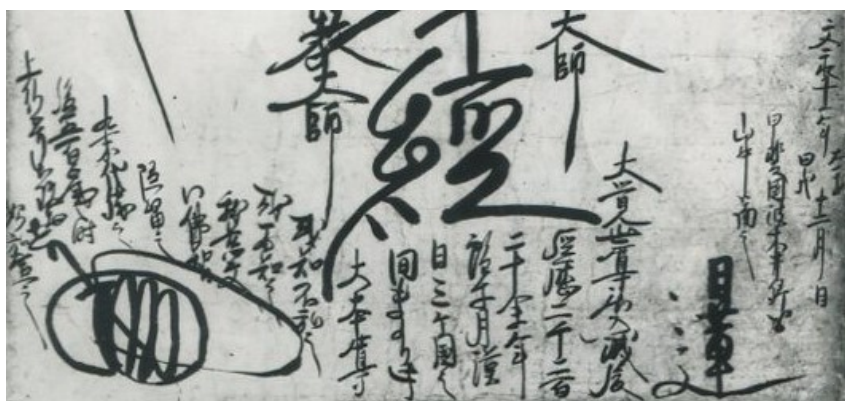 文永十一年太才甲戌十二月日
甲斐國波木井郷於
山中圖之
日蓮
大師
大覺世尊御入滅後
經歷二千二百
二十余年
雖尓月漢
日三ヶ國之
間未有此
大本尊
經
教大師
或知不弘之
或不知之
我慈父
以佛智
隱留之
為末代残之
後五百歲之時
上行菩薩出現於世
始弘宣之